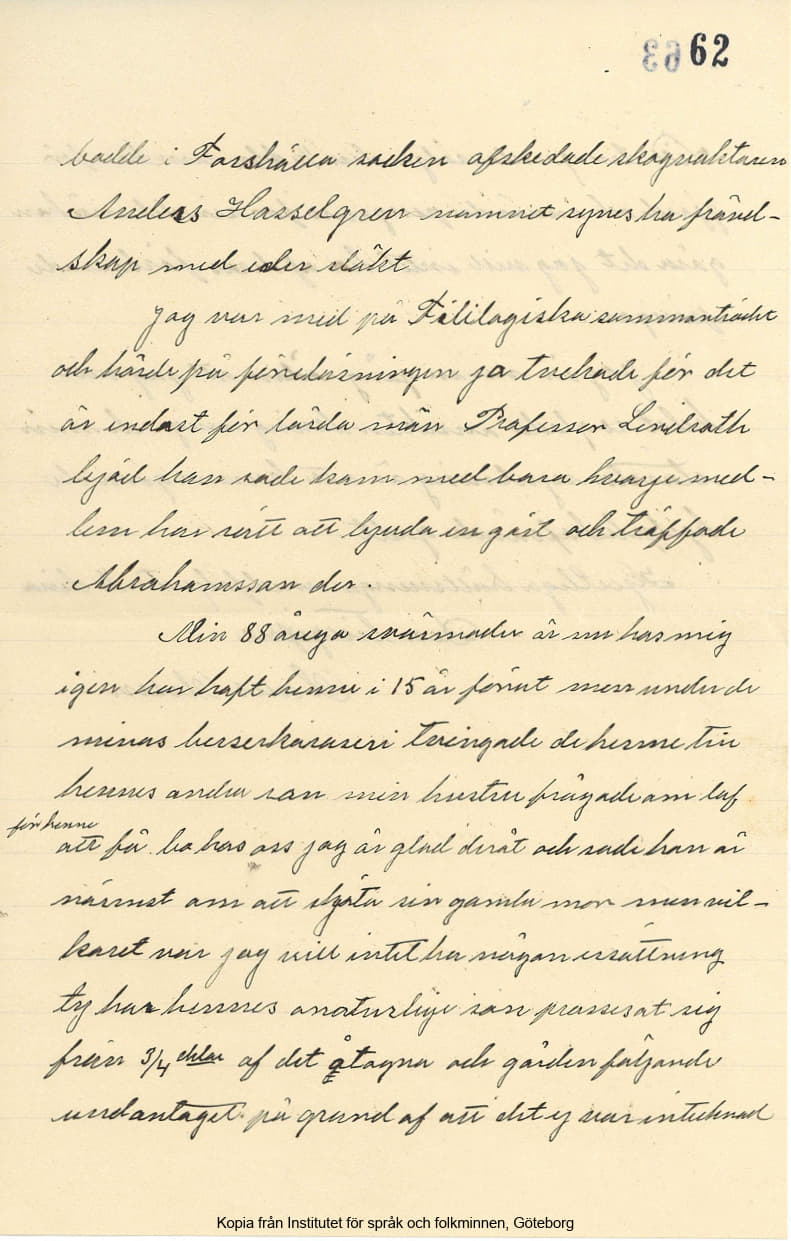 63 62
bodde i Forshälla socken afskedade skogvaktaren
Anders Hasselgren namnet synes ha fränd-
skap med eder släkt
Jag var med på Fililogiska sammanträdet
och hörde på föreläsningen ja tvekade för det
är endast för lärda män Professor Lindroth
bjöd han sade kom med bara hvarje med-
lem har rätt att bjuda en gäst och träffade
Abrahamsson der.
Min 88 åriga svärmoder är nu hos mig
igen har haft henne i 15 år förut men under de
minas berserkaraseri tvingade de henne till
hennes andra son min hustru frågade om lof
för henne
att få bo hos oss jag är glad deråt och sade hon är
närmst om att sköta sin gamla mor men vil-
koret var jag vill intet ha någon ersättning
ty har hennes onaturlige son prossesat sig
från 3/4 delar af det åtagna och gården följande
undantaget på grund af att det ej var intecknad
Kopia från Institutet för språk och folkminnen, Göteborg